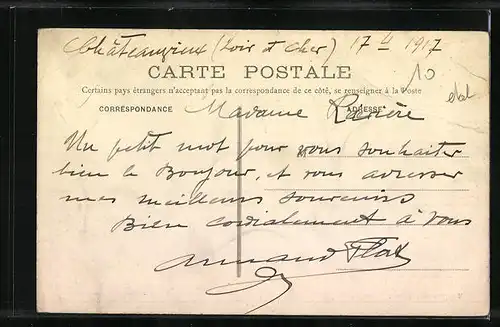 Châteauvieux (Loir et Cher) 17 4 1917
10
CARTE POSTALE
Certains pays étrangers n'acceptant pas la correspondance de ce côté, se renseigner à la Poste
CORRESPONDANCE
ADRESSE
Madame
Un petit mot pour vous souhaiter
bien le Bonjour, et vous adresser
mes meilleurs souvenirs
Bien cordialement à vous
Armand